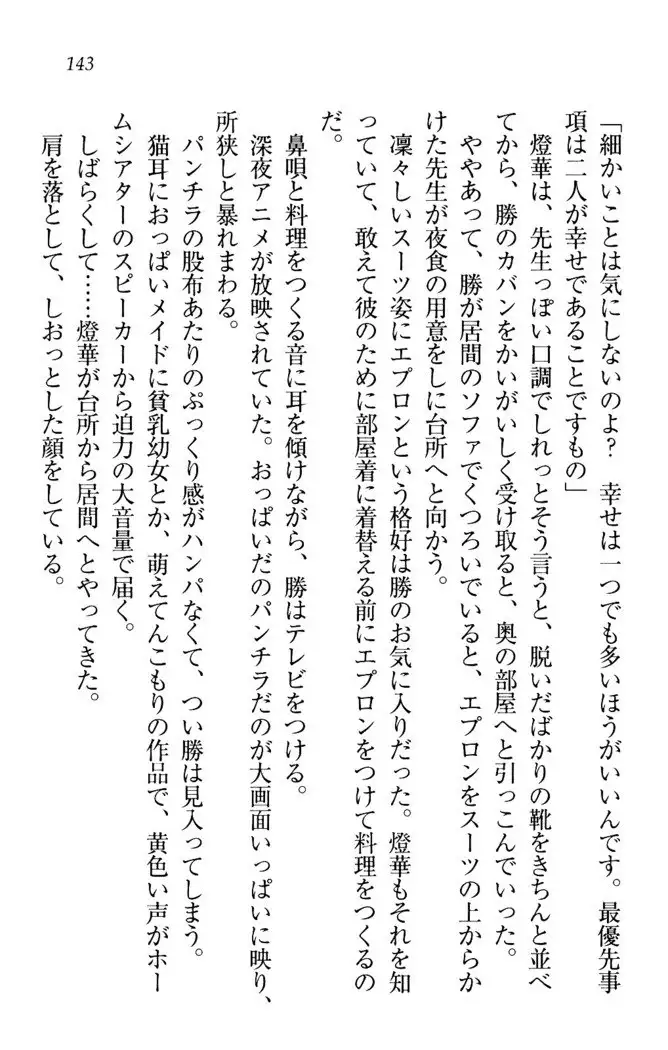 143
「細かいことは気にしないのよ？　幸せは一つでも多いほうがいいんです。最優先事
項は二人が幸せであることですもの」
　燈華は、先生っぽい口調でしれっとそう言うと、脱いだばかりの靴をきちんと並べ
てから、勝のカバンをかいがいしく受け取ると、奥の部屋へと引っこんでいった。
　ややあって、勝が居間のソファでくつろいでいると、エプロンをスーツの上からか
けた先生が夜食の用意をしに台所へと向かう。
　凜々しいスーツ姿にエプロンという格好は勝のお気に入りだった。燈華もそれを知
っていて、敢えて彼のために部屋着に着替える前にエプロンをつけて料理をつくるの
だ。
　鼻唄と料理をつくる音に耳を傾けながら、勝はテレビをつける。
　深夜アニメが放映されていた。おっぱいだのパンチラだのが大画面いっぱいに映り、
所狭しと暴れまわる。
　パンチラの股布あたりのぷっくり感がハンパなくて、つい勝は見入ってしまう。
　猫耳におっぱいメイドに貧乳幼女とか、萌えてんこもりの作品で、黄色い声がホー
ムシアターのスピーカーから迫力の大音量で届く。
　しばらくして……燈華が台所から居間へとやってきた。
　肩を落として、しおっとした顔をしている。